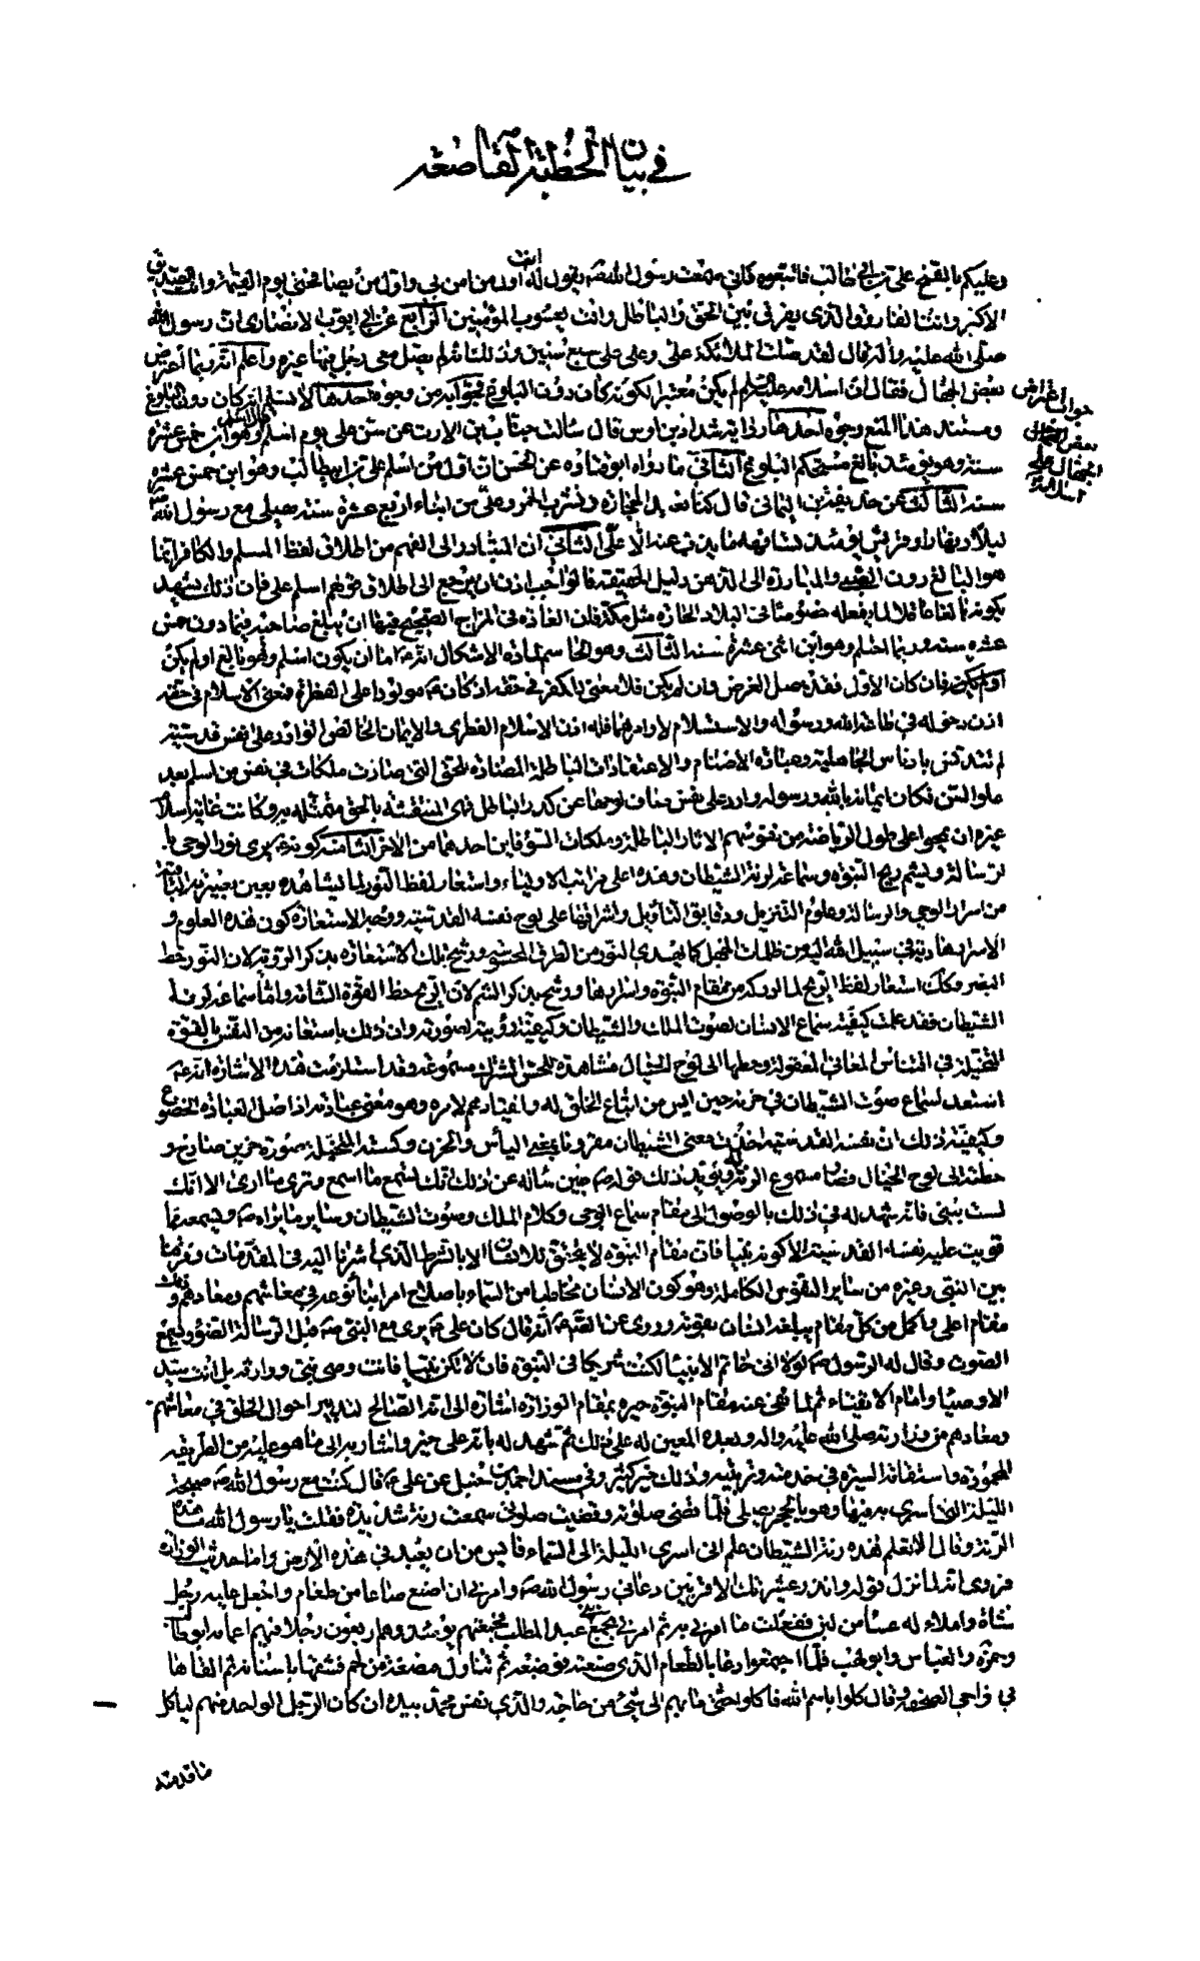 في بيان الخطبة القاصعة
وعليكم بالشيخ علي بن ابي طالب فاتبعوه فاني سمعت رسول الله ص يقول له انت اول من امن بي واول من يصافحني يوم القيمة وانت الصديق
الاكبر وانت الفاروق الذي يفرق بين الحق والباطل وانت يعسوب المؤمنين الرابع عن ابي ايوب الانصاري ان رسول الله
صلى الله عليه واله قال لقد صلت الملائكة علي وعلى علي سبع سنين وذلك انه لم يصل معي رجل فيها غيره واعلم انه ربما اعترض
بعض الجهال فقال ان اسلامه عليه السلم لم يكن معتبرا لكونه كان دون البلوغ فجوابه من وجوه احدها لا نسلم انه كان دون البلوغ
جواب اعتراض
بعض
الجهال على
اسلامه
ومستند هذا المنع وجوه احدها رواية شداد بن اوس قال سالت خباب بن الارت عن سن علي يوم اسلم قال اسلم وهو ابن خمس عشرة
سنة وهو يومئذ بالغ مستحكم البلوغ الثاني ما رواه ابو قتاده عن الحسن ان اول من اسلم علي بن ابيطالب وهو ابن خمس عشرة
سنة الثالث عن حذيفة بن اليماني قال كنا نعبد الحجارة ونشرب الخمر وعلي من ابناء اربع عشرة سنة يصلي مع رسول الله ص
ليلا ونهارا وقريش يومئذ تسافهه ما يذب عنه الا علي الثاني ان المتبادر الى الفهم من اطلاق لفظ المسلم والكافر انما
هو البالغ دون الصبي والمبادرة الى الذهن دليل الحقيقة فالواجب اذن ان يرجع الى اطلاق قولهم اسلم علي فان ذلك يشهد
بكونه بالغا عاقلا لما يفعله خصوصا في البلاد الحارة مثل مكة فان العادة في المزاج الصحيح فيها ان يبلغ صاحبه فيما دون خمس
عشره سنة وربما احتلم وهو ابن اثنى عشرة سنة الثالث وهو الحاسم لمادة الاشكال انه ع اما ان يكون اسلم وهو بالغ او لم يكن
فان كان الاول فقد حصل الغرض وان لم يكن فلا معنى للكفر في حقه اذ كان ع مولودا على الفطرة فمعنى الاسلام في حقه
اذن دخوله في طاعة الله ورسوله والاستسلام لاوامرهما فله اذن الاسلام الفطري والايمان الخالص الوارد على نفس قدسية
لم تتدنس بادناس الجاهلية وعبادة الاصنام والاعتقادات الباطلة المضادة للحق التي صارت ملكات في نفس من اسلم بعد
علو السن فكان ايمانه بالله ورسوله وارد على نفس صاف لوحها عن كدر الباطل فهي المنتقشة بالحق متمثلة به وكانت غاية اسلام
غيره ان يمحوا على طول الرياضة من نفوسهم الاثار الباطلة وملكات السوء فاين احدهما من الاخر الثامنه كونه ع يرى نور الوحي با
لرسالة ويشم ريح النبوة وسماعه لرنة الشيطان وهذه اعلى مراتب الاولياء واستعار لفظ النور لما يشاهده بعين بصيرته الباقية
من اسرار الوحي والرسالة وعلوم التنزيل ودقايق التاويل واشراقها على لوح نفسه القدسية ووجه الاستعارة كون هذه العلوم و
الاسرار هادية في سبيل الله اليه من ظلمات الجهل كما يهدي النور من الطرق المحسوسة ورشح تلك الاستعارة بذكر الرؤية لان النور حظ
البصر وكك استعار لفظ الريح لما ادركه من مقام النبوة واسرارها ورشح بذكر الشم لان الريح حظ القوة الشامة واما سماعه لرنة
الشيطان فقد علمت كيفية سماع الانسان لصوت الملك والشيطان وكيفية رؤيته لصورته وان ذلك باستعانة من النفس بالقوة
المتخيلة في اقتناص المعاني المعقولة وحطها الى لوح الخيال مشاهدة للحس المشترك مسموعة وقد استلزمت هذه الاشارة انه ع
استعد لسماع صوت الشيطان في حزنه حين ايس من اتباع الخلق له وانقيادهم لامره وهو معنى عبادته اذ اصل العبادة الخضوع
وكيفية ذلك ان نفسه القدسية اخذت معنى الشيطان مقرونا بمعنى اليأس والحزن وكسته المتخيلة صورة حزين صارخ و
حطته الى لوح الخيال فصار مسموع الرنة له ويؤيد ذلك قوله ص حين سأله عن ذلك انك تسمع ما اسمع وترى ما ارى الا انك
لست بنبي فانه شهد له في ذلك بالوصول الى مقام سماع الوحي وكلام الملك وصوت الشيطان وساير ما يراه ص ويسمعه مما
قويت عليه نفسه القدسية الا كونه نبيا فان مقام النبوة لا يتحقق للانسان الا بالشرط الذي اشرنا اليه في المقدمات وفرقنا
بين النبي وغيره من ساير النفوس الكاملة وهو كون الانسان مخاطبا من السماء باصلاح امر ابناء نوعه في معاشهم ومعادهم وذلك
مقام اعلى واكمل من كل مقام يبلغه انسان بقوته وروي عن الصادق ع انه قال كان علي ع يرى مع النبي ص قبل الرسالة الضوء ويسمع
الصوت وقال له الرسول ص لولا اني خاتم الانبيا لكنت شريكا في النبوة فان لا تكن نبيا فانت وصي نبي ووارثه بل انت سيد
الاوصيا وامام الاتقياء ثم لما نفى عنه مقام النبوة جبره بمقام الوزارة اشارة الى انه الصالح لتدبير احوال الخلق في معاشهم
ومعادهم من وزارته صلى الله عليه واله وبعده المعين له على ذلك ثم شهد له بانه على خير واشار به الى ما هو عليه من الطريقة
المحمودة واستقامة السيرة في خدمته وتربيته وذلك خير كثير وفي مسند احمد بن حنبل عن علي ع قال كنت مع رسول الله ص صبيحة
الليلة التي اسري به فيها وهو بالحجر يصلي فلما قضى صلوته وقضيت صلوتي سمعت رنة شديدة فقلت يا رسول الله ما هذه
الرنة وقال الا تعلم هذه رنة الشيطان علم اني اسري الليلة الى السماء فايس من ان يعبد في هذه الارض واما حديث الوزارة
فروى انه لما نزل قوله وانذر عشيرتك الاقربين دعاني رسول الله ص وامرني ان اصنع صاعا من طعام واجعل عليه رجل
شاة واملاء له عسا من لبن ففعلت ما امرني به ثم امرني بجمع بني عبد المطلب فجمعتهم يومئذ وهم اربعون رجلا فيهم اعمامه ابو طالب
وحمزة والعباس وابو لهب فلما اجتمعوا دعا بالطعام الذي صنعته فوضعته ثم تناول مضغة من لحم فشقها باسنانه ثم القاها
في نواحي الصحفة وقال كلوا باسم الله فاكلوا حتى ما بهم الى شيء من حاجة والذي نفس محمد بيده ان كان الرجل الواحد منهم لياكل
ما قدمته